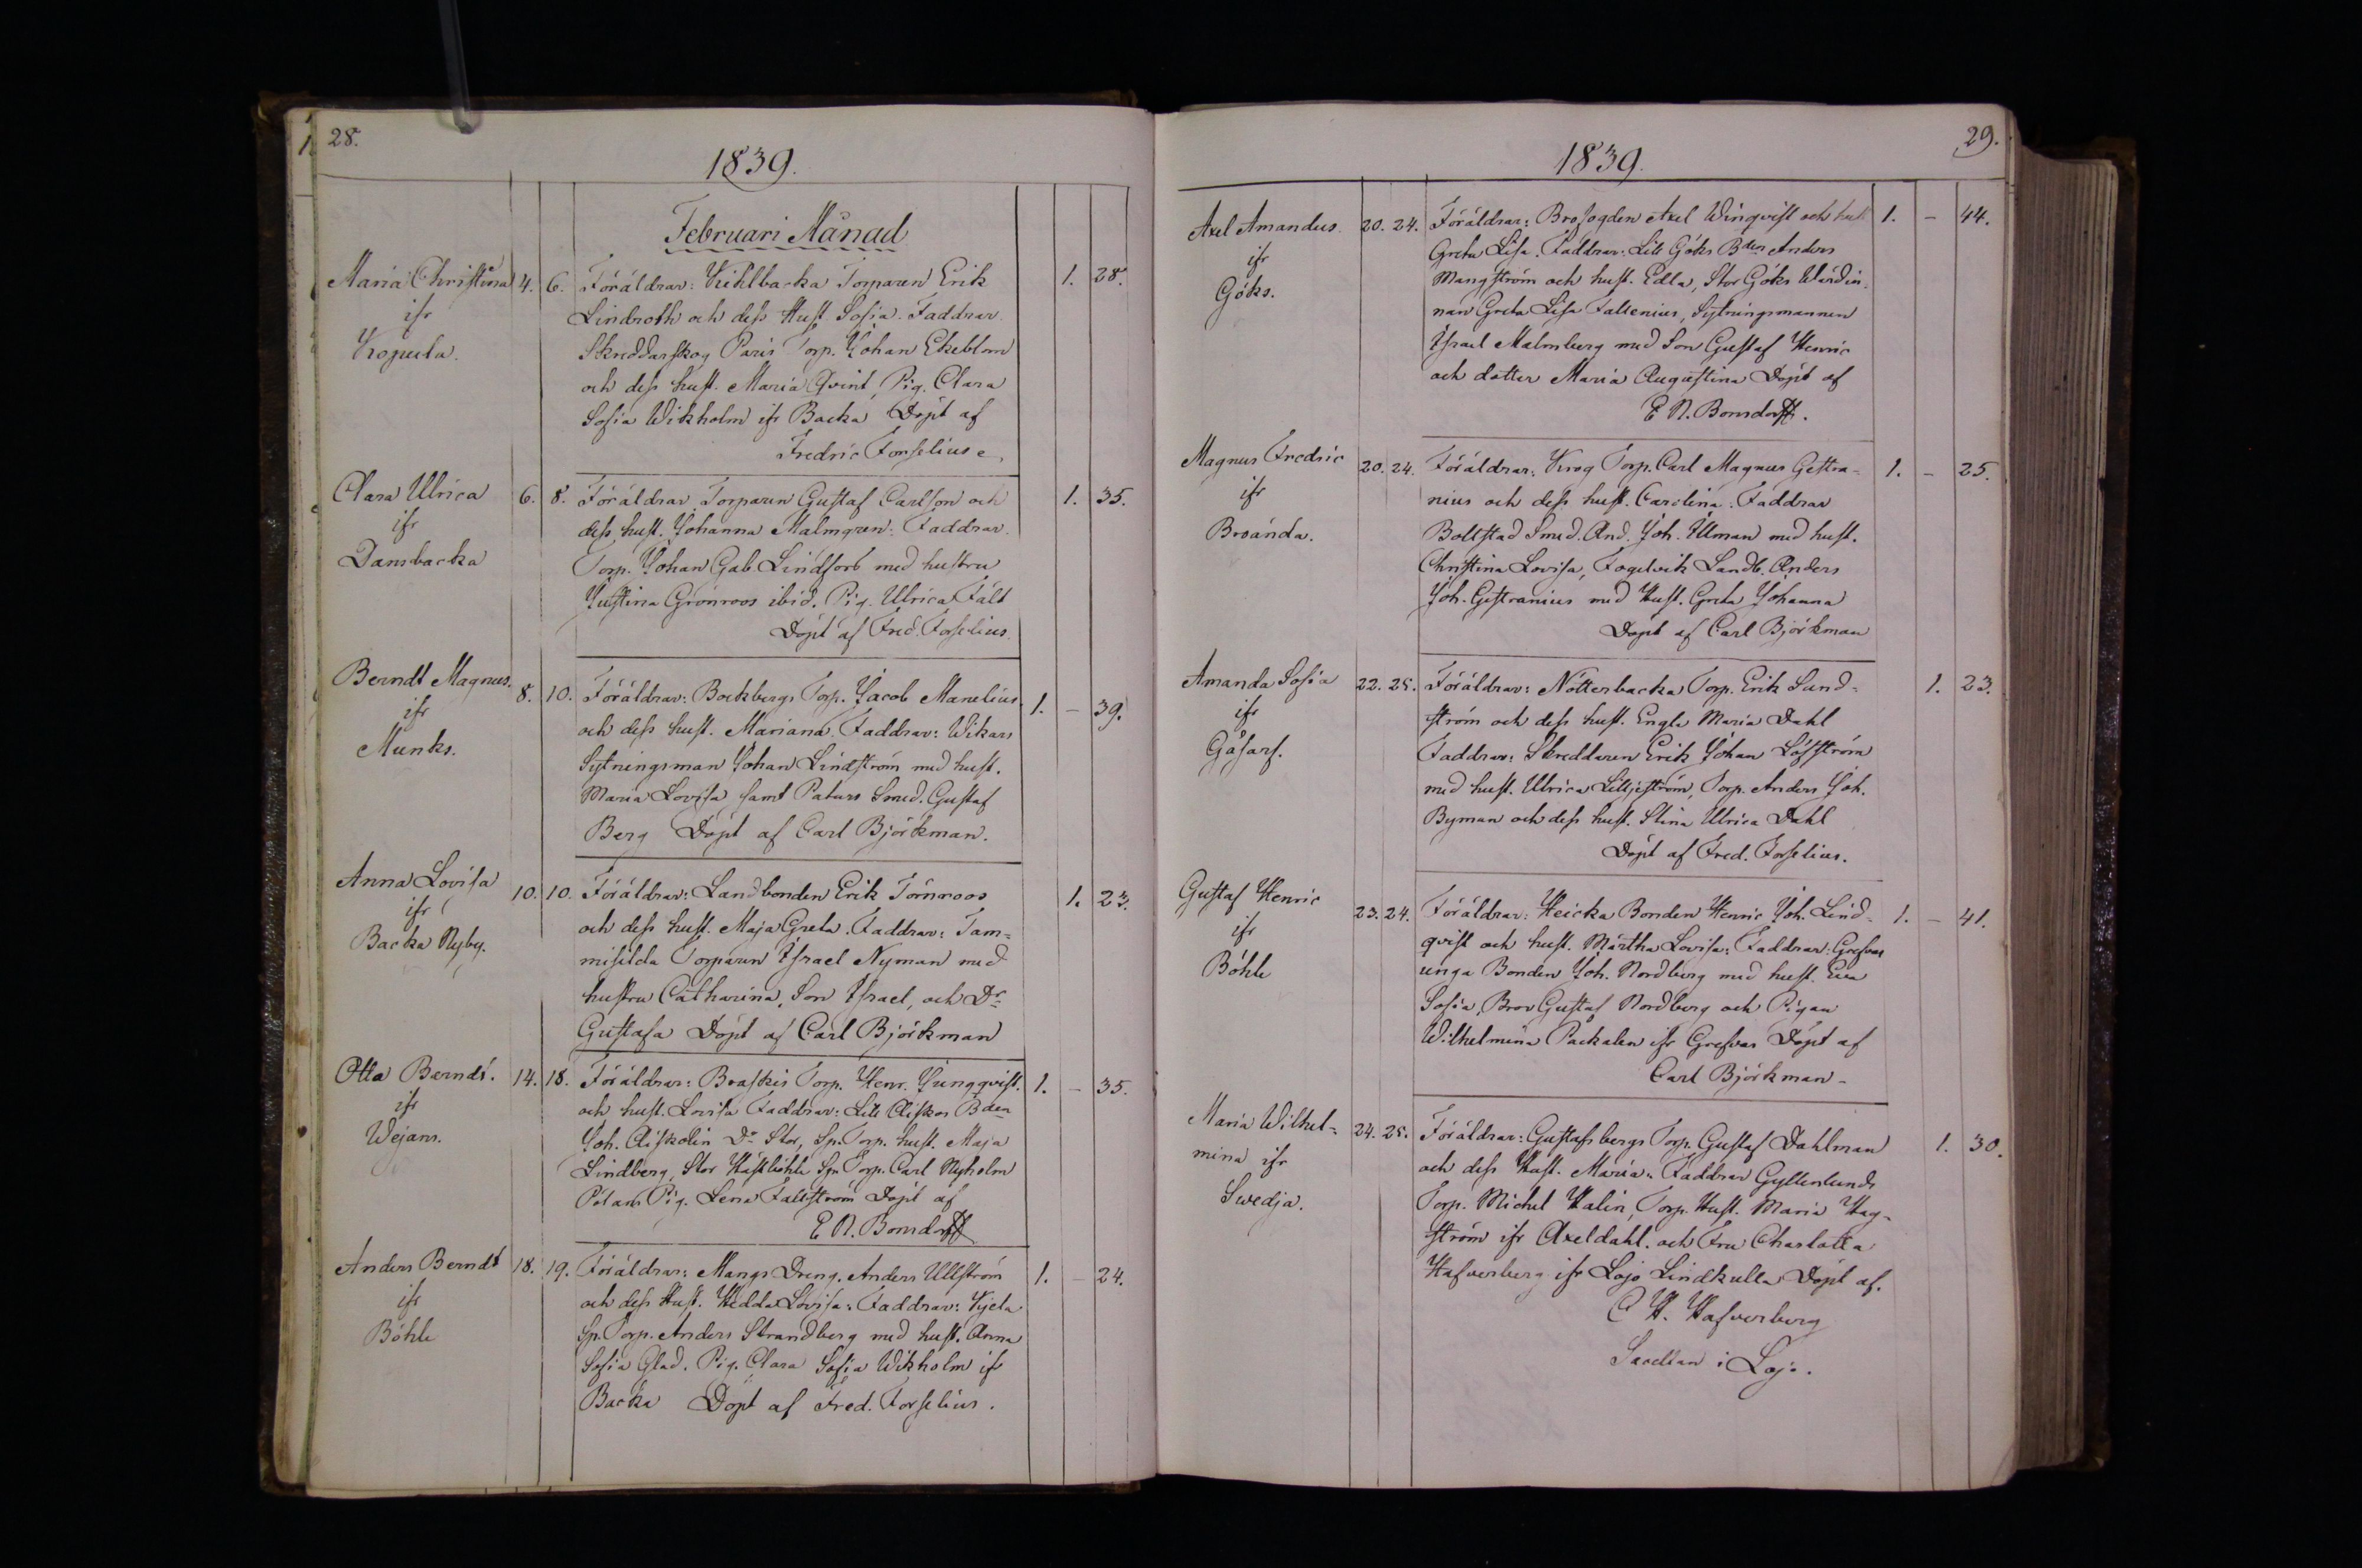 28.
1839.
Februari Månad
Maria Christina 4. 6. Föräldrar: Kihlbacka Torparen Erik 1. 28.
ifr Lindroth och dess Hust. Sofia. Faddrar.
Kopula. Skreddarskog Paris Torp. Johan Ekeblom
och dess hust. Maria Qvint, Pig. Clara
Sofia Wikholm ifr Backa Döpt af
Fredric Forselius
Clara Ulrica 6. 8. Föräldrar Torparen Gustaf Carlson och 1. 35.
ifr dess hust. Johanna Malmgren: Faddrar.
Dansbacka Torp. Johan Gab. Lindfors med hustru
Justina Grönroos ibid. Pig. Ulrica Fält
Döpt af Fred. Forselius.
Berndt Magnus. 8. 10. Föräldrar: Bockbergs Torp. Jacob Manelius 1. – 39.
ifr och dess hust. Mariana. Faddrar: Wikars
Munks. Sytningsman Johan Lindström med hust.
Maria Lovisa samt Paturs Smed. Gustaf
Berg Döpt af Carl Björkman.
Anna Lovisa 10. 10. Föräldrar: Landbonden Erik Törnroos 1. 23.
ifr och dess hust. Maja Greta. Faddrar: Tam=
Backa Nyby. misilda Torparen Israel Nyman med
hustru Catharina, Son Israel, och Dr
Gustafa Döpt af Carl Björkman
Otto Berndt. 14. 18. Föräldrar: Braskis Torp. Henr. Ljungqvist. 1. – 35.
ifr och hust. Lovisa Faddrar: Lill Aiskos Bden
Wejans. Joh. Aiskolin Do Stor, Sp. Torp. hust. Maja
Lindberg, Stor Hästböhle Sp. Torp. Carl Nyholm
Pötars Pig. Lena Fallström Döpt af
E N. Bonsdorff
Anders Berndt 18. 19. Föräldrar: Mangs Dreng. Anders Ullström 1. – 24.
ifr och dess Hust. Hedda Lovisa: Faddrar: Kjela
Böhle Sp. Torp. Anders Strandberg med hust. Anna
Sofia Glad. Pig. Clara Sofia Wikholm ifr
Backa Döpt af Fred. Forselius.
29.
1839.
Axel Amandus 20. 24. Föräldrar: Brofogden Axel Winqvist och hust 1. – 44.
ifr Greta Lisa. Faddrar: Lill Göks Bden Anders
Göks. Mangström och hust. Edla, Stor Göks Wärdin
nan Greta Lisa Fallenius, Sytningsmannen
Israel Malmberg med Son Gustaf Henric
och dotter Maria Augustina Döpt af
E N. Bonsdorff.
Magnus Fredric 20. 24. Föräldrar: Krog Torp. Carl Magnus Gestra- 1. – 25.
ifr nius och dess hust. Carolina. Faddrar
Broända. Bollstad Smed. And. Joh. Ulman med hust.
Christina Lovisa, Fogelvik Landb. Anders
Joh. Gestranius med Hust. Greta Johanna
Döpt af Carl Björkman
Amanda Sofia 22. 25. Föräldrar: Nötterbacka Torp. Erik Sund= 1. 23.
ifr ström och dess hust. Engla Maria Dahl
Gåsarf. Faddrar: Skreddaren Erik Johan Löfström
med hust. Ulrica Liljeström, Torp. Anders Joh.
Byman och dess hust. Stina Ulrica Dahl
Döpt af Fred. Forselius.
Gustaf Henric 23. 24. Föräldrar: Heicka Bonden Henric Joh. Lind- 1. – 41.
ifr qvist och hust. Märtha Lovisa: Faddrar: Grefvas
Böhle unga Bonden Joh. Nordberg med hust. Eva
Sofia, Bror Gustaf Nordberg och Pigan
Wilhelmina Packalen ifr Grefvas Döpt af
Carl Björkman-
Maria Wilhel= 24. 25. Föräldrar: Gustafsbergs Torp. Gustaf Dahlman 1. 30.
mina ifr och dess Hust. Maria: Faddrar Gyllenlunds
Swedja. Torp. Michel Halin, Torp. Hust. Maria Hag-
ström ifr Axeldahl. och Fru Charlotta
Hafverberg ifr Lojo Lindkulla Döpt af.
C H. Hafverberg
Sacellan i Lojo.